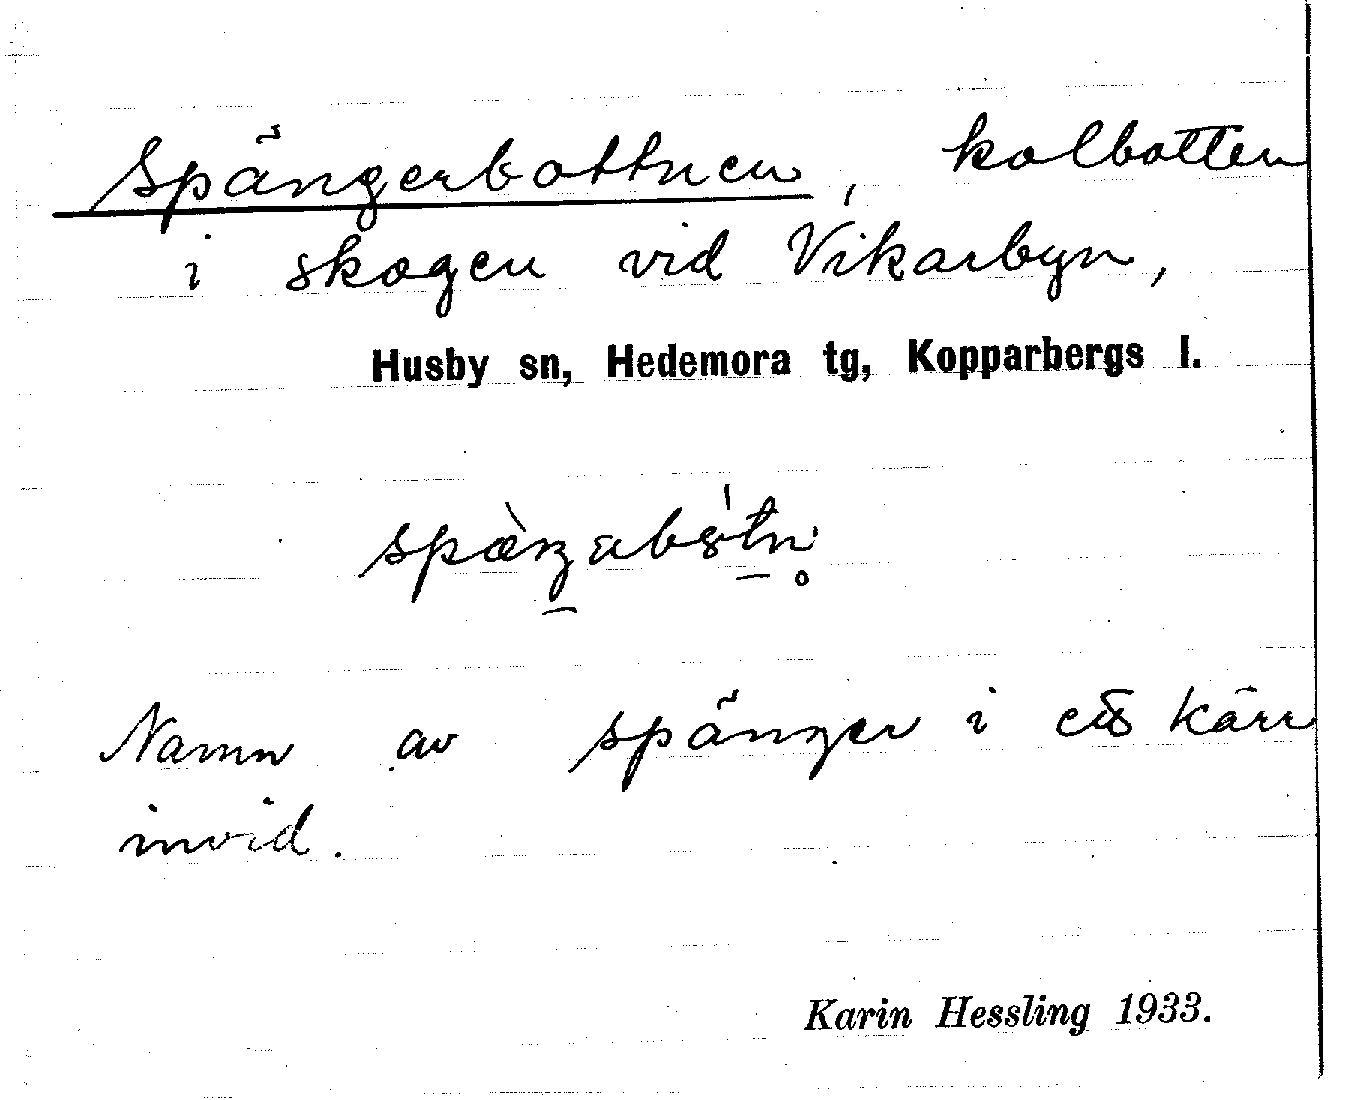 Spängerbottnen, kolbotten
i skogen vid Vikarbyn,
Husby sn, Hedemora tg, Kopparbergs l.
Namn av spänger i ett kärr
invid.
Karin Hessling 1933.